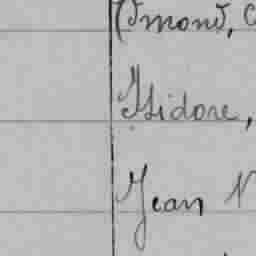 Osmond, C
Isidore,
Jean N